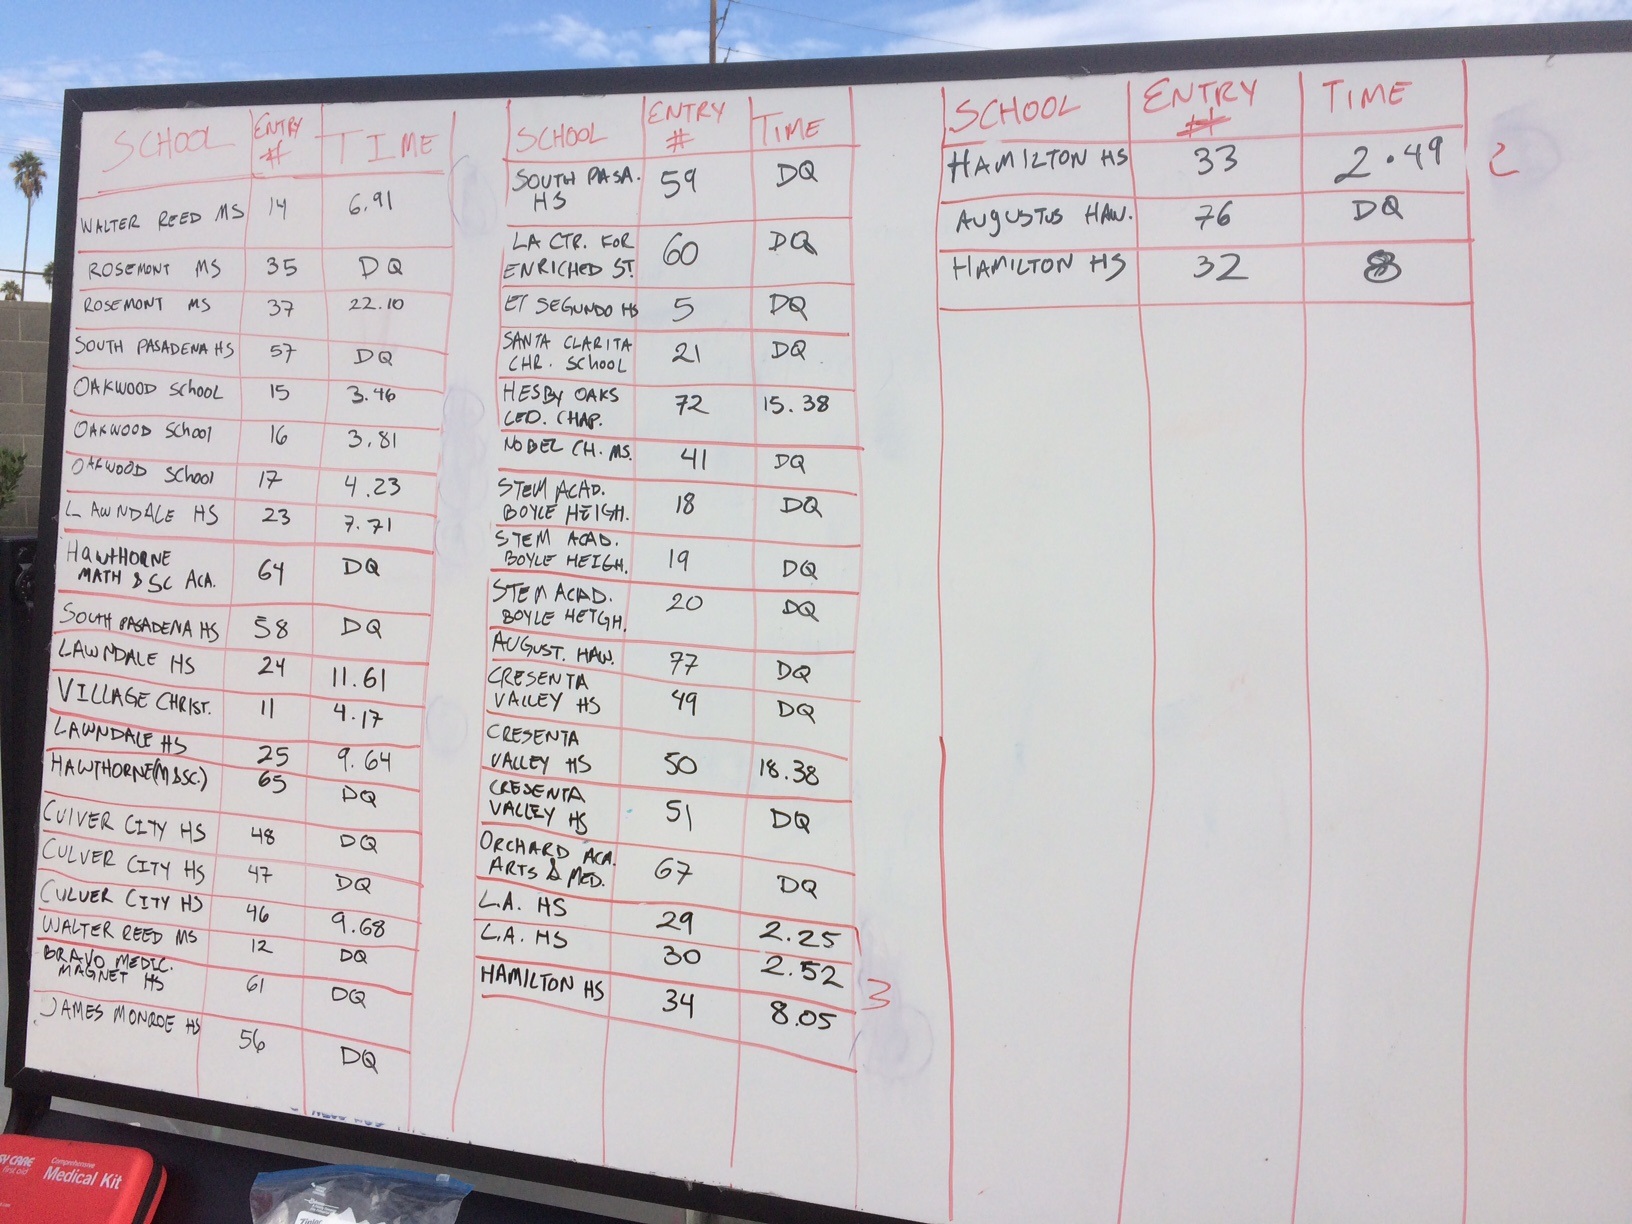 SCHOOL ENTRY # TIME
WALTER REED MS 14 6.91
ROSEMONT MS 35 DQ
ROSEMONT MS 37 22.10
SOUTH PASADENA HS 57 DQ
OAKWOOD SCHOOL 15 3.46
OAKWOOD SCHOOL 16 3.81
OAKWOOD SCHOOL 17 4.23
LAWNDALE HS 23 7.71
HAWTHORNE
MATH & SC ACA. 64 DQ
SOUTH PASADENA HS 58 DQ
LAWNDALE HS 24 11.61
VILLAGE CHRIST. 11 4.17
LAWNDALE HS 25 9.64
HAWTHORNE(M&SC.) 65 DQ
CULVER CITY HS 48 DQ
CULVER CITY HS 47 DQ
CULVER CITY HS 46 9.68
WALTER REED MS 12 DQ
BRAVO MEDIC.
MAGNET HS 61 DQ
JAMES MONROE HS 56 DQ
SCHOOL ENTRY # TIME
SOUTH PASA.
HS 59 DQ
LA CTR. FOR
ENRICHED ST. 60 DQ
El SEGUNDO HS 5 DQ
SANTA CLARITA
CHR. SCHOOL 21 DQ
HESBY OAKS
LED. CHAP. 72 15.38
NOBEL CH. MS. 41 DQ
STEM ACAD.
BOYLE HEIGH. 18 DQ
STEM ACAD.
BOYLE HEIGH. 19 DQ
STEM ACAD.
BOYLE HEIGH. 20 DQ
AUGUST. HAW. 77 DQ
CRESENTA
VALLEY HS 49 DQ
CRESENTA
VALLEY HS 50 18.38
CRESENTA
VALLEY HS 51 DQ
ORCHARD ACA.
ARTS & MED. 67 DQ
L.A. HS 29 2.25
L.A. HS 30 2.52 3
HAMILTON HS 34 8.05
SCHOOL ENTRY # TIME
HAMILTON HS 33 2.49 2
AUGUSTUS HAW. 76 DQ
HAMILTON HS 32 8
SY CARE
first aid
Comprehensive
Medical Kit